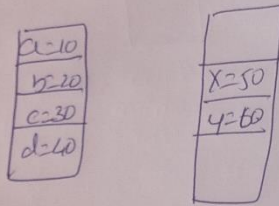 a=10
b=20
c=30
d=40
x=50
y=60